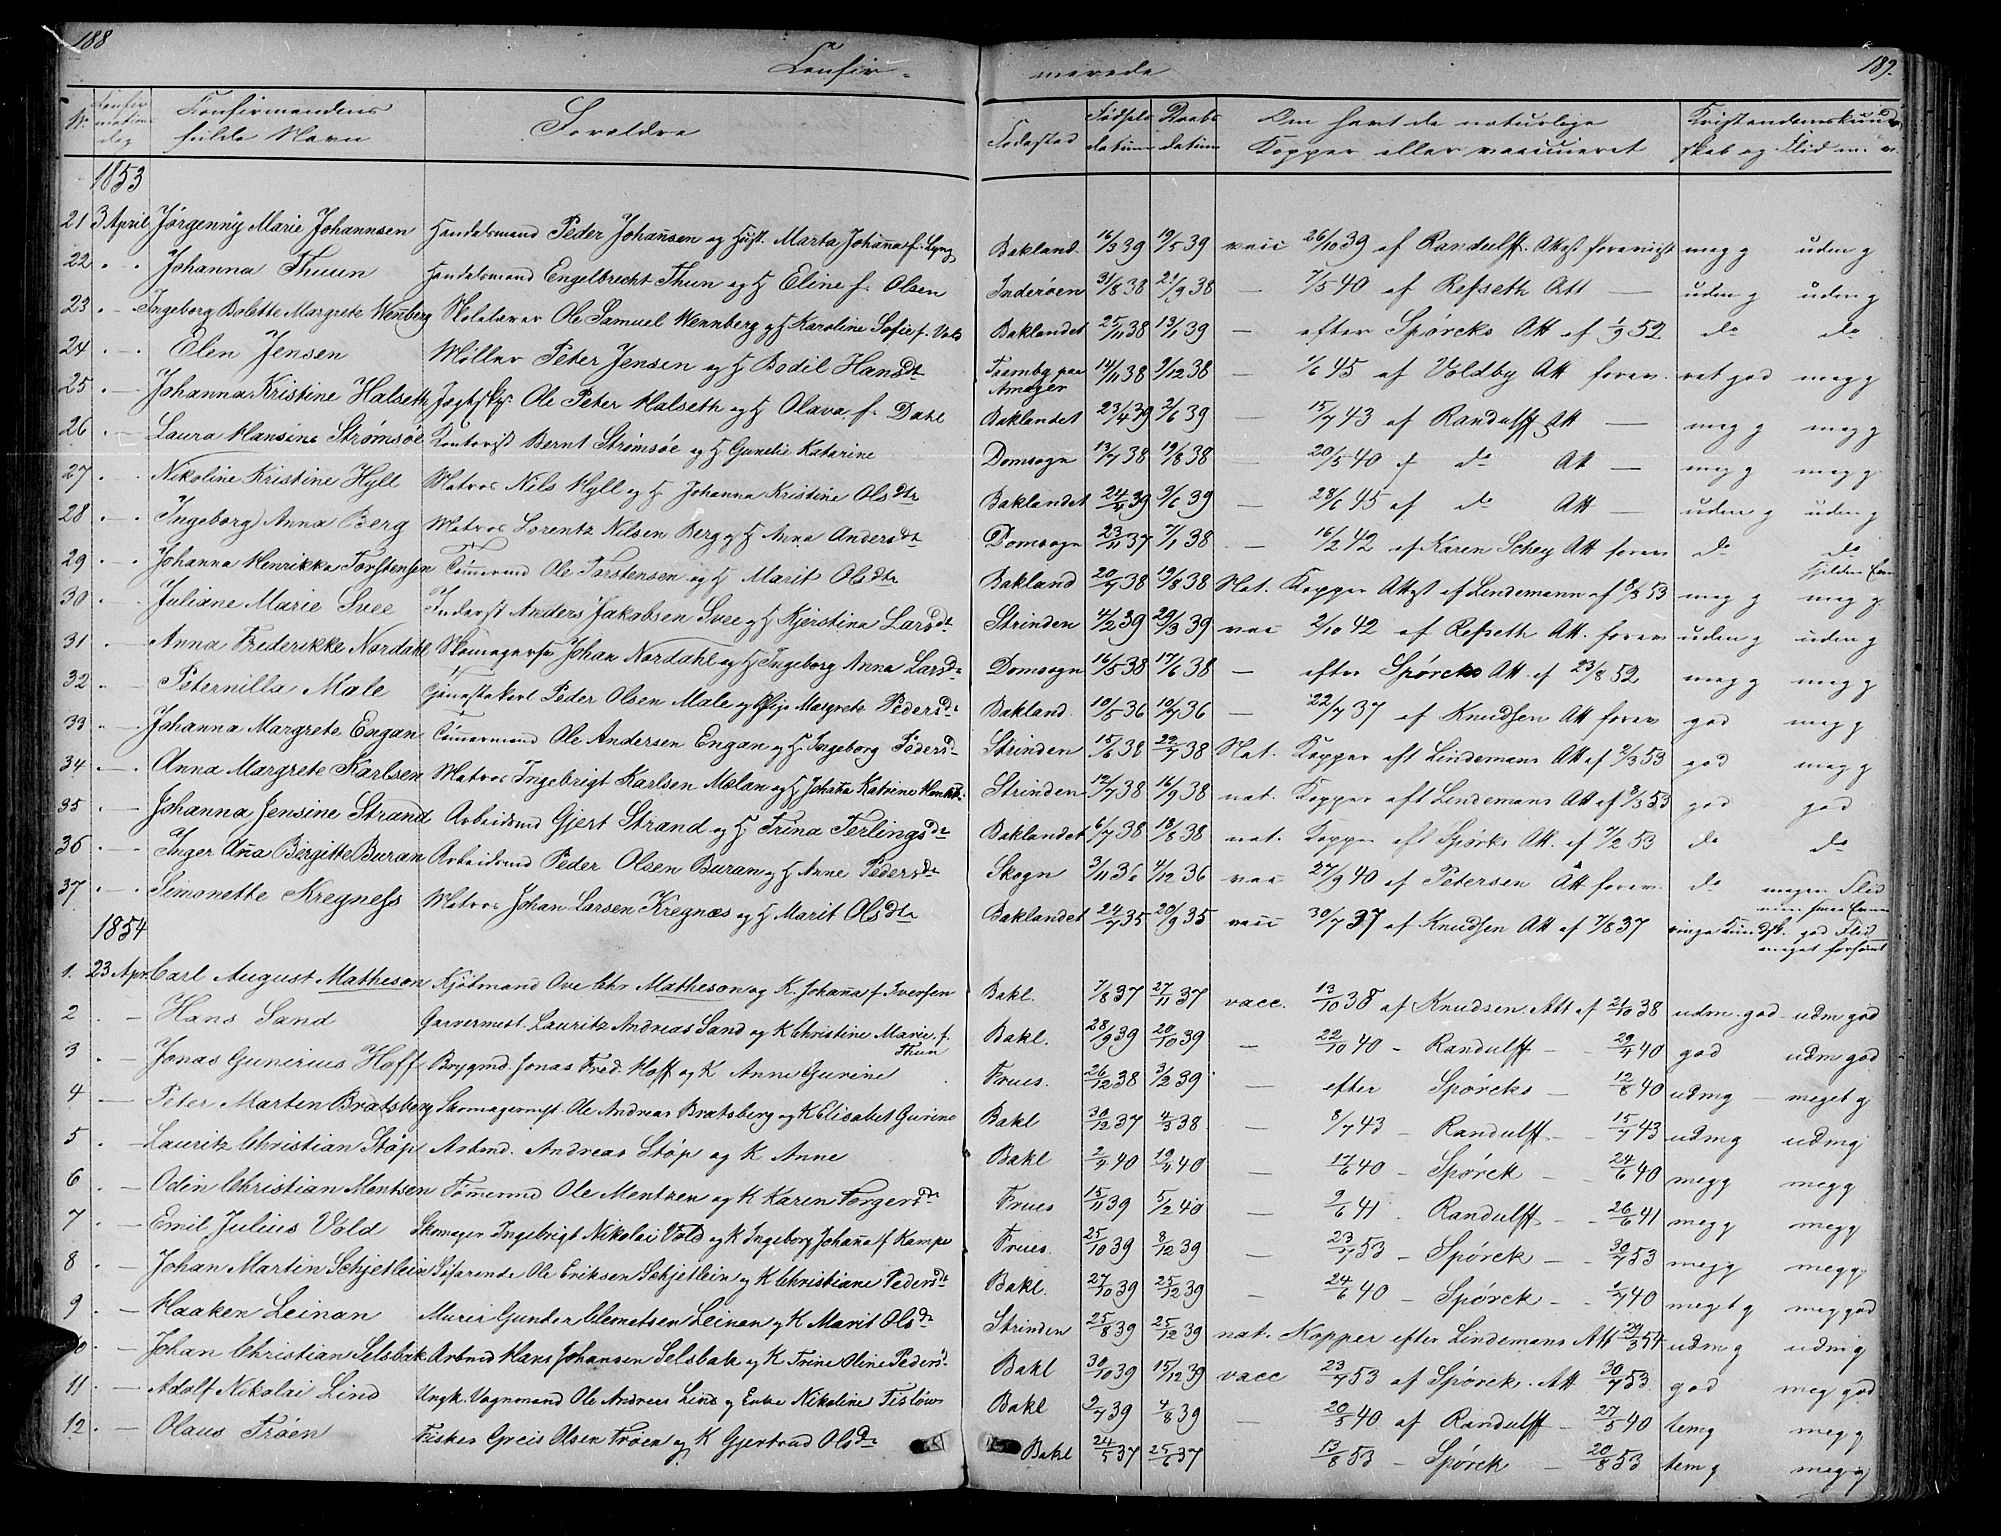 188
189.
Confir-
merede
No
Confirmations dag
Confirmandens fulde Navn
Forældre
Fødested
Fødsels datum
Daabs datum
Om havt de naturlige Kopper eller vaccineret
Kristendomskundskab og Flid
1853
21 3 April Jörgenny Marie Johannsen Handelsmand Peder Johansen og Hust. Marta Johanna f. Lyng Bakland. 16/3 39 19/5 39 vacc 26/10 39 af Randulff. Attest foreviist meg g uden g
22 . - Johanna Thuun Handelsmand Engelbrecht Thun og H Eline f. Olsen Inderöen 31/8 38 21/9 38 — 7/5 40 af Refseth Att — uden g uden g
23 . - Ingeborg Bolette Margrete Wenberg Skolelærer Ole Samuel Wennberg og H Karoline Sofie f. Baklandet 25/11 38 13/1 39 — efter Spörcks Att af 1/9 52 do do
24 . - Elen Jensen Møller Peter Jensen og H Bodil Hansdt Taarnby paa Amager 14/11 38 2/12 38 — 1/6 45 af Voldby Att forev. ret god meg g
25 . - Johanna Kristine Halseth Ole Peter Halseth og H Olava f. Dahl Baklandet 23/4 39 2/6 39 — 15/7 43 af Randulff Att — meg g meg g
26 . - Laura Hansine Strömsöe Kontorist Bernt Strömsöe og H Gunelie Katarine Domsogn 13/7 38 19/8 38 — 20/5 40 af do Att — meg g meg g
27 . - Nikoline Kristine Hyll Matros Nils Hyll og H Johanna Kristine Olsdtr Baklandet 24/4 39 9/6 39 — 28/6 45 af do Att — uden g uden g
28 . - Ingeborg Anna Berg Matros Lorentz Nilsen Berg og H Anna Andersdt Domsogn 23/11 37 7/1 38 — 16/2 42 af Karen Schey Att forev do do
29 . - Johanna Henrikka Torstensen Tömermd Ole Torstensen og H Marit Olsdtr Bakland 20/7 38 19/8 38 Nat. Kopper Attest af Lindemann af 2/3 53 meg g meg g
30 . - Juliane Marie Svee Inderst Anders Jakobsen Svee og H Kjerstina Larsdt Strinden 4/2 39 29/3 39 vac 2/10 42 af Refseth Att. forev uden g uden g
31 . - Anna Frederikke Nordahl Skomagersv Johan Nordahl og H Ingeborg Anna Larsd Domsogn 16/5 38 17/6 38 — efter Spörcks Att. af 23/8 52 meg g meg g
32 . - Peternilla Male Tjenestekarl Peder Olsen Male og Pige Margrete Pedersdt Bakland 10/5 36 10/7 36 — 22/7 37 af Knudsen Att forev god meg g
33 . - Johanna Margrete Engan Tömermand Ole Andersen Engan og H. Ingeborg Pedersd Strinden 15/6 38 29/7 38 Nat. Kopper eft Lindemans Att af 2/3 53 god meg g
34 . - Anna Margrete Karlsen Matros Ingebrigt Karlsen Mælan og H Johanna Katrine Strinden 12/7 38 16/9 38 nat. Kopper eft Lindemans Att af 2/3 53 god god
35 . - Johanna Jensine Strand Arbeidsmd Gjert Strand og H Trina Terlingsdt Baklandet 6/7 38 18/8 38 nat. Kopper eft Spörks Att. af 7/2 53 do do
36 . - Inger Anna Birgitte Buran Arbeidsmd Peder Olsen Buran og H Anne Pedersdt Skogn 3/11 36 4/12 36 vac 27/9 40 af Petersen Att forev. do megen Flid
37 . - Simonette Kregness Matros Johan Larsen Kregnæs og H Marit Olsdtr Baklandet 24/7 35 20/9 35 vacc 30/7 37 af Knudsen Att af 7/8 37 ringe Kundsk. god Flid meget forsömt
1854
1. 23 Apr. Carl August Matheson Kjöbmand Ove Chr Matheson og K. Johanna f. Iversen Bakl. 7/8 37 27/11 37 vacc. 13/10 38 af Knudsen. Att af 21/10 38 udm. god udm god
2 . - Hans Sand Garvermest. Lauritz Andreas Sand og K Christine Marie f. Thun Bakl. 28/9 39 20/10 39 — 22/10 40 - Randulff - - 29/4 40 god udm god
3 . - Jonas Gunerius Hoff Brygmd. Jonas Fred. Hoff og K Anne Gurine Frues. 26/12 38 3/2 39 — efter Spörcks - 12/8 40 udm g meget g
4 - Peter Martin Bratsberg Skomagermest Ole Andreas Bratsberg og K Elisabet Gurine Bakl 30/12 37 4/3 38 8/7 43 - Randulff - - 15/7 43 udm g udm g
5 . - Lauritz Christian Stöp Arbmd. Andreas Stöp og K Anne Bakl 2/4 40 19/4 40 — 17/6 40 - Spörck - - 24/6 40 meg g meg g
6 . - Odin Christian Mentsen Tömermd Ole Mentzen og K Karen Torgersdt Frues 15/11 39 5/12 40 — 9/6 41 - Randulff - - 26/6 41 meg g meg g
7 . - Emil Julius Vold Skomager Ingebrigt Nikolai Vold og K Ingeborg Johanna f Kampe Frues. 25/10 39 8/12 39 — 23/7 53 - Spörck - - 30/7 53 meg g meg g
8 . - Johan Martin Schjetlein Söfarende Ole Eriksen Schjetlein og K Christiane Pedersdt Bakl. 27/10 39 25/12 39 — 24/6 40 - Spörck - - 1/7 40 meget g meg god
9 . - Haaken Leinan Murer Gunder Clemetsen Leinan og K Marit Olsdt Strinden 25/8 39 25/12 39 nat. Kopper efter Lindemans Att 29/3 54 udm g udm g
10 . - Johan Christian Selsbak Arbmd Hans Johansen Selsbak og K Trine Oline Peders. Bakl 30/10 39 15/12 39 vacc 23/7 53 af Spörcks. Att 30/7 53 god meg god
11 . - Adolf Nikolai Lind Ungk. Vognmand Ole Andreas Lind og Enke Nikoline Tislöw Bakl 2/7 39 4/8 39 — 20/5 40 af Randulff - 27/5 40 tem g meg g
12 . - Olaus Tröen Fisker Greis Olsen Tröen og K Gjertrud Olsdt Bakl 24/5 37 25/6 37 13/8 53 - Spörck - 20/8 53 tem g meg g